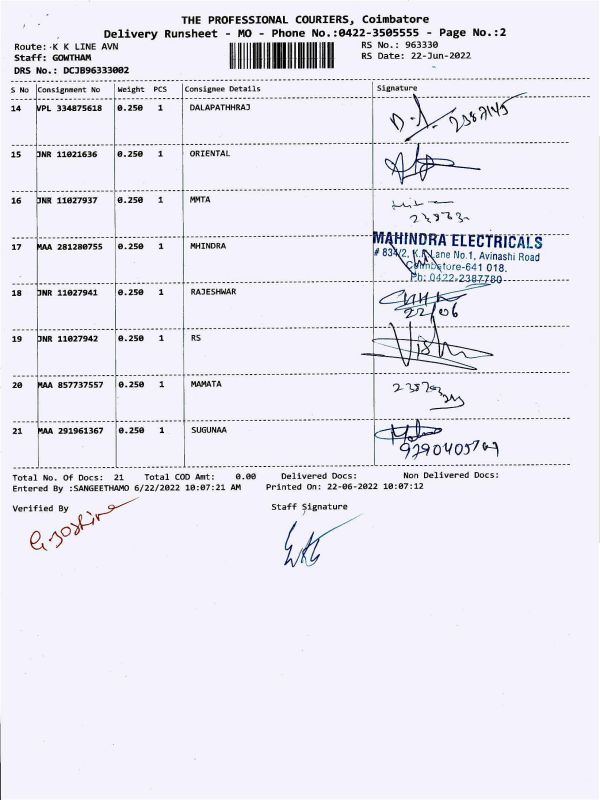 THE PROFESSIONAL COURIERS, Coimbatore
Delivery Runsheet - MO - Phone No.:0422-3505555 - Page No.:2
Route: K K LINE AVN RS No.: 963330
Staff: GOWTHAM RS Date: 22-Jun-2022
DRS No.: DCJB96333002
S No Consignment No Weight PCS Consignee Details Signature
14 VPL 334875618 0.250 1 DALAPATHHRAJ
15 JNR 11021636 0.250 1 ORIENTAL
16 JNR 11027937 0.250 1 MMTA
17 MAA 281280755 0.250 1 MHINDRA
MAHINDRA ELECTRICALS
# 834/2, K.K Lane No.1, Avinashi Road
Coimbatore-641 018.
Ph: 0422-2387780
18 JNR 11027941 0.250 1 RAJESHWAR
22/06
19 JNR 11027942 0.250 1 RS
20 MAA 857737557 0.250 1 MAMATA
21 MAA 291961367 0.250 1 SUGUNAA
Total No. Of Docs: 21 Total COD Amt: 0.00 Delivered Docs: Non Delivered Docs:
Entered By :SANGEETHAMO 6/22/2022 10:07:21 AM Printed On: 22-06-2022 10:07:12
Verified By Staff Signature